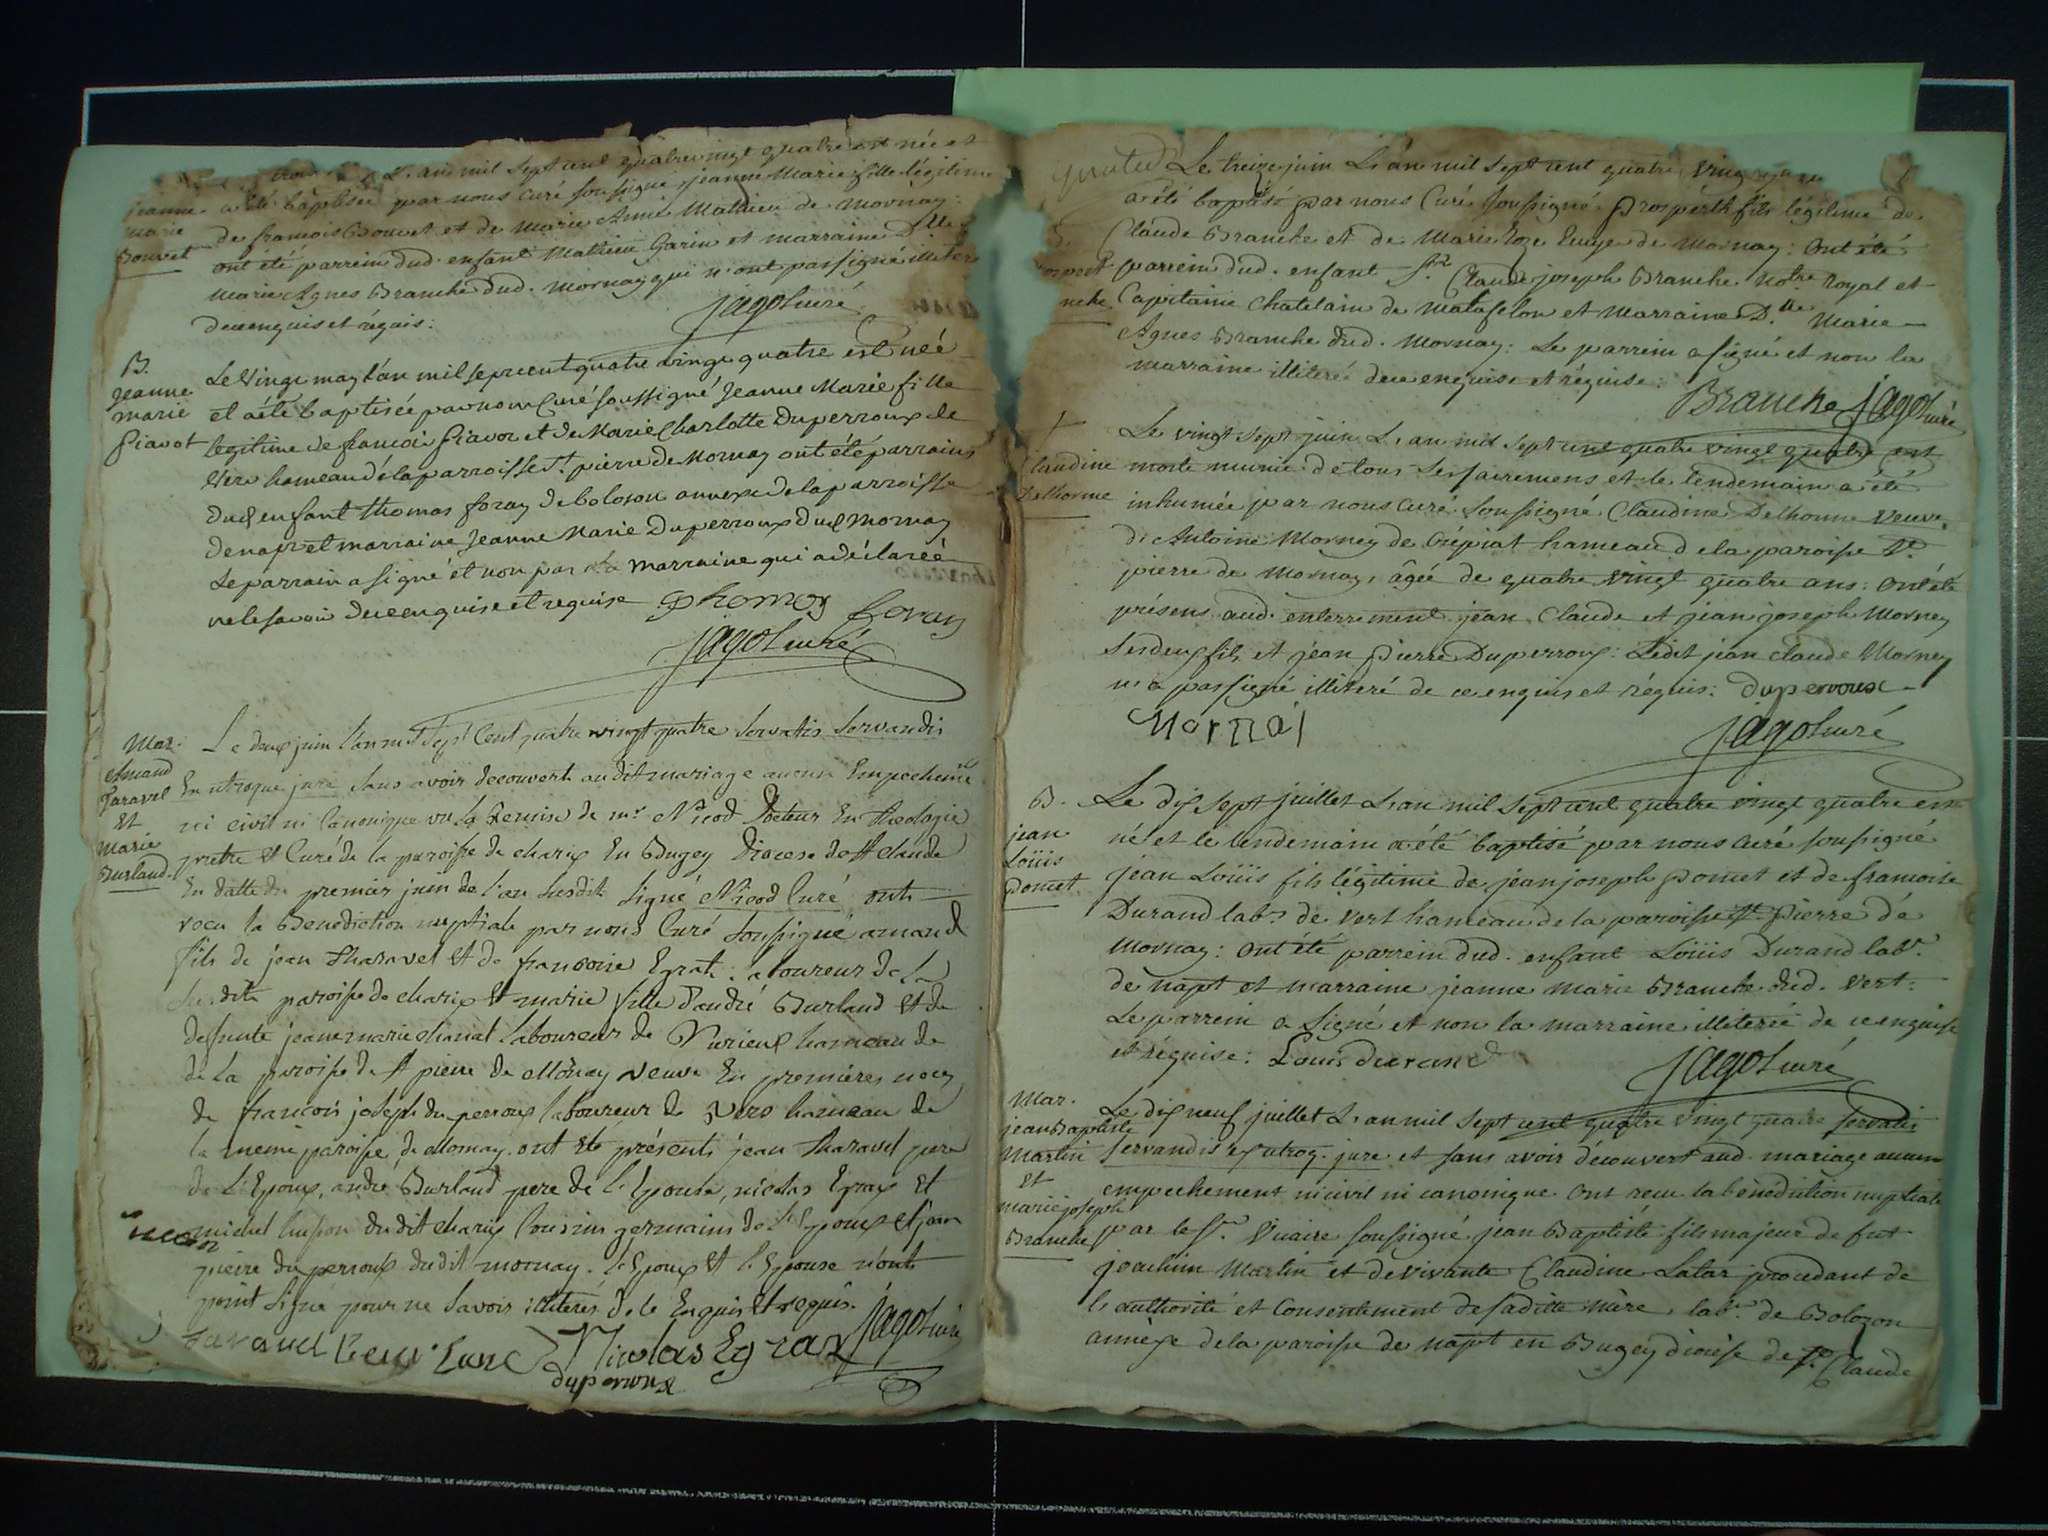 L'an mil sept cent quatre vingt quatre est née et
a été baptisée par nous curé soussigné, jeanne Marie fille légitime
de francois Bouvet et de Marie Anne Mathieu de Mornay:
ont été parrein dud. enfant Mathieu Garin et marraine Dlle
Marie Agnes Branche dud. Mornay qui n'ont pas signé illiteré
de ce enquis et réquis:
jagot curé
jeanne
marie
Bouvet
B.
jeanne
marie
Piavot
Le vingt may l'an mil sept cent quatre vingt quatre est née
et a été baptisée par nous Curé soussigné Jeanne Marie fille
legitime de francois Piavot et de Marie Charlotte Duperroux de
Vers hameau de la parroisse St. pierre de Mornay ont été parrains
dud enfant Thomas foray de bolozon annexe de la parroisse
de napt et marraine Jeanne Marie Duperroux dud Mornay
Le parrain a signé et non pas la marraine qui a déclareé
ne le savoir de ce enquise et requise Thomas foray
jagot curé
Mar.
Amand
Taravel
Et
Marie
Burland.
Le deux juin l'an mil Sept Cent quatre vingt quatre Servatis Servandis
En utroque jure Sans avoir decouvert au dit mariage aucun Empechemt
ni civil ni Canonique vu la Remise de mr Nicod Docteur En Theologie
pretre Et Curé de la paroisse de charix En Bugey Diocese de St Claude
En datte du premier juin de l'an Susdit Signé Nicod Curé ont
recu la Benediction nuptiale par nous Curé Soussigné amand
fils de jean Tharavel Et de francoise Egraz laboureur de La
Susdite paroisse de charix Et marie fille d'andré Burland Et de
defunte jeanne marie chanal laboureur de Nurieux hameau de
de La paroisse de St pierre de Mornay veuve En premières noces
de francois joseph du perroux laboureur de Vers hameau de
la meme paroisse de Mornay. ont été présents jean Tharavel pere
de L'Epoux, andré Burland pere de l'Epouse, nicolas Egraz Et
michel husson du dit charix Cousins germains de l'Epoux Et jean
pierre du perroux du dit mornay. l'Epoux Et l'Epouse n'ont
point Signé pour ne Savoir illiterés de le Enquis Et requis.
jagot curé
Nicolas Egraz
duperroux
Le treize juin L'an mil sept cent quatre vingt quatre
a été baptisé par nous Curé soussigné Prosper fils légitime de
Claude Branche et de Marie Roze Euye de Mornay: Ont été
parrein dud. enfant Sr Claude joseph Branche Notre royal et
Capitaine Chatelain de Matafelon et Marraine Dlle Marie
Agnes Branche dud. Mornay: Le parrein a signé et non la
marraine illiterée de ce enquise et réquise:
Branche jagot curé
†
Claudine
Delhorme
Le vingt sept juin L'an mil sept cent quatre vingt quatre est
morte munie de tous les sacremens et le lendemain a été
inhumée par nous curé soussigné Claudine Delhorme veuve
de Antoine Morney de Crépiat hameau de la paroisse St.
pierre de Mornay, âgée de quatre vingt quatre ans: Ont été
présens aud. enterrement jean Claude et jean joseph Morney
ses deux fils et jean Pierre Duperroux: Ledit jean claude Morney
n'a pas signé illiteré de ce enquis et réquis: duperroux
Mornai
jagot curé
B.
jean
Loüis
Pomet
Le dix sept juillet L'an mil sept cent quatre vingt quatre est
né et le lendemain a été baptisé par nous curé soussigné
jean Loüis fils légitime de jean joseph Pomet et de francoise
Durand labrs de Vert hameau de la paroisse St Pierre de
Mornay: Ont été parrein dud. enfant Loüis Durand labr.
de Napt et marraine jeanne Marie Branche dud. Vert:
Le parrein a signé et non la marraine illiterée de ce enquise
et réquise: Louis durand
jagot curé
Mar.
jean Baptiste
Martin
Et
Marie joseph
Branche
Le dix neuf juillet L'an mil sept cent quatre vingt quatre servatis
servandis in utroq. jure et sans avoir découvert aud. mariage aucun
empechement ni civil ni canonique ont recu la bénédiction nuptiale
par le Sr. Vicaire soussigné jean Baptiste fils majeur de fut
joachim Martin et de vivante Claudine Latar procedant de
l'authorité et consentement de sa ditte mère, labr. de Bolozon
annèxe de la paroisse de Napt en Bugey diocese de St. Claude